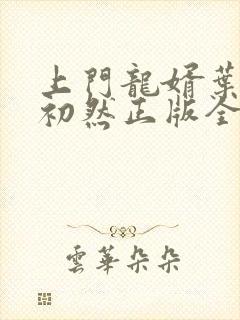 上門龍婿葉
初然正版全
雲華朵朵